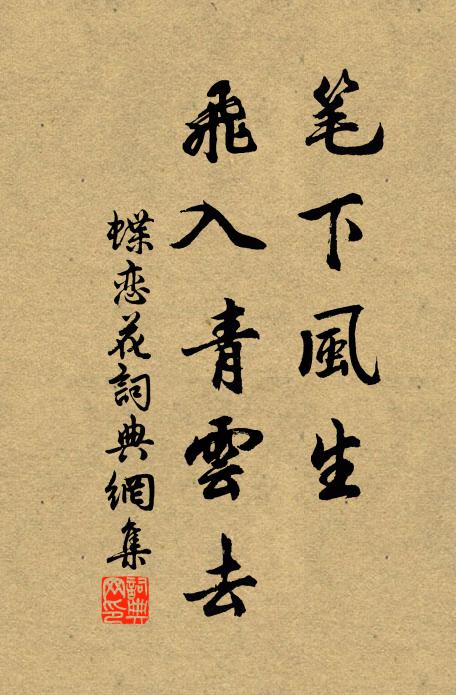 笔下風生
飛入青雲去
蝶恋花詞典網集
詞典网印